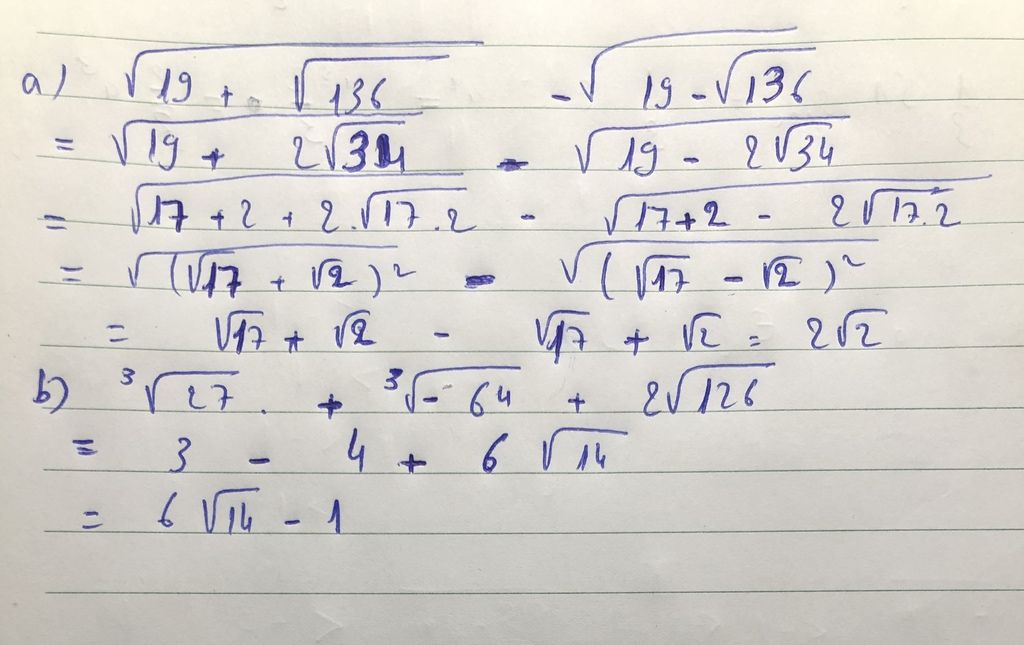 a) √(19 + √136) - √(19 - √136)
= √(19 + 2√34) - √(19 - 2√34)
= √(17 + 2 + 2.√17.2) - √(17 + 2 - 2√17.2)
= √(√17 + √2)² - √(√17 - √2)²
= √17 + √2 - √17 + √2 = 2√2
b) ³√27 . + ³√-64 + 2√126
= 3 - 4 + 6√14
= 6√14 - 1